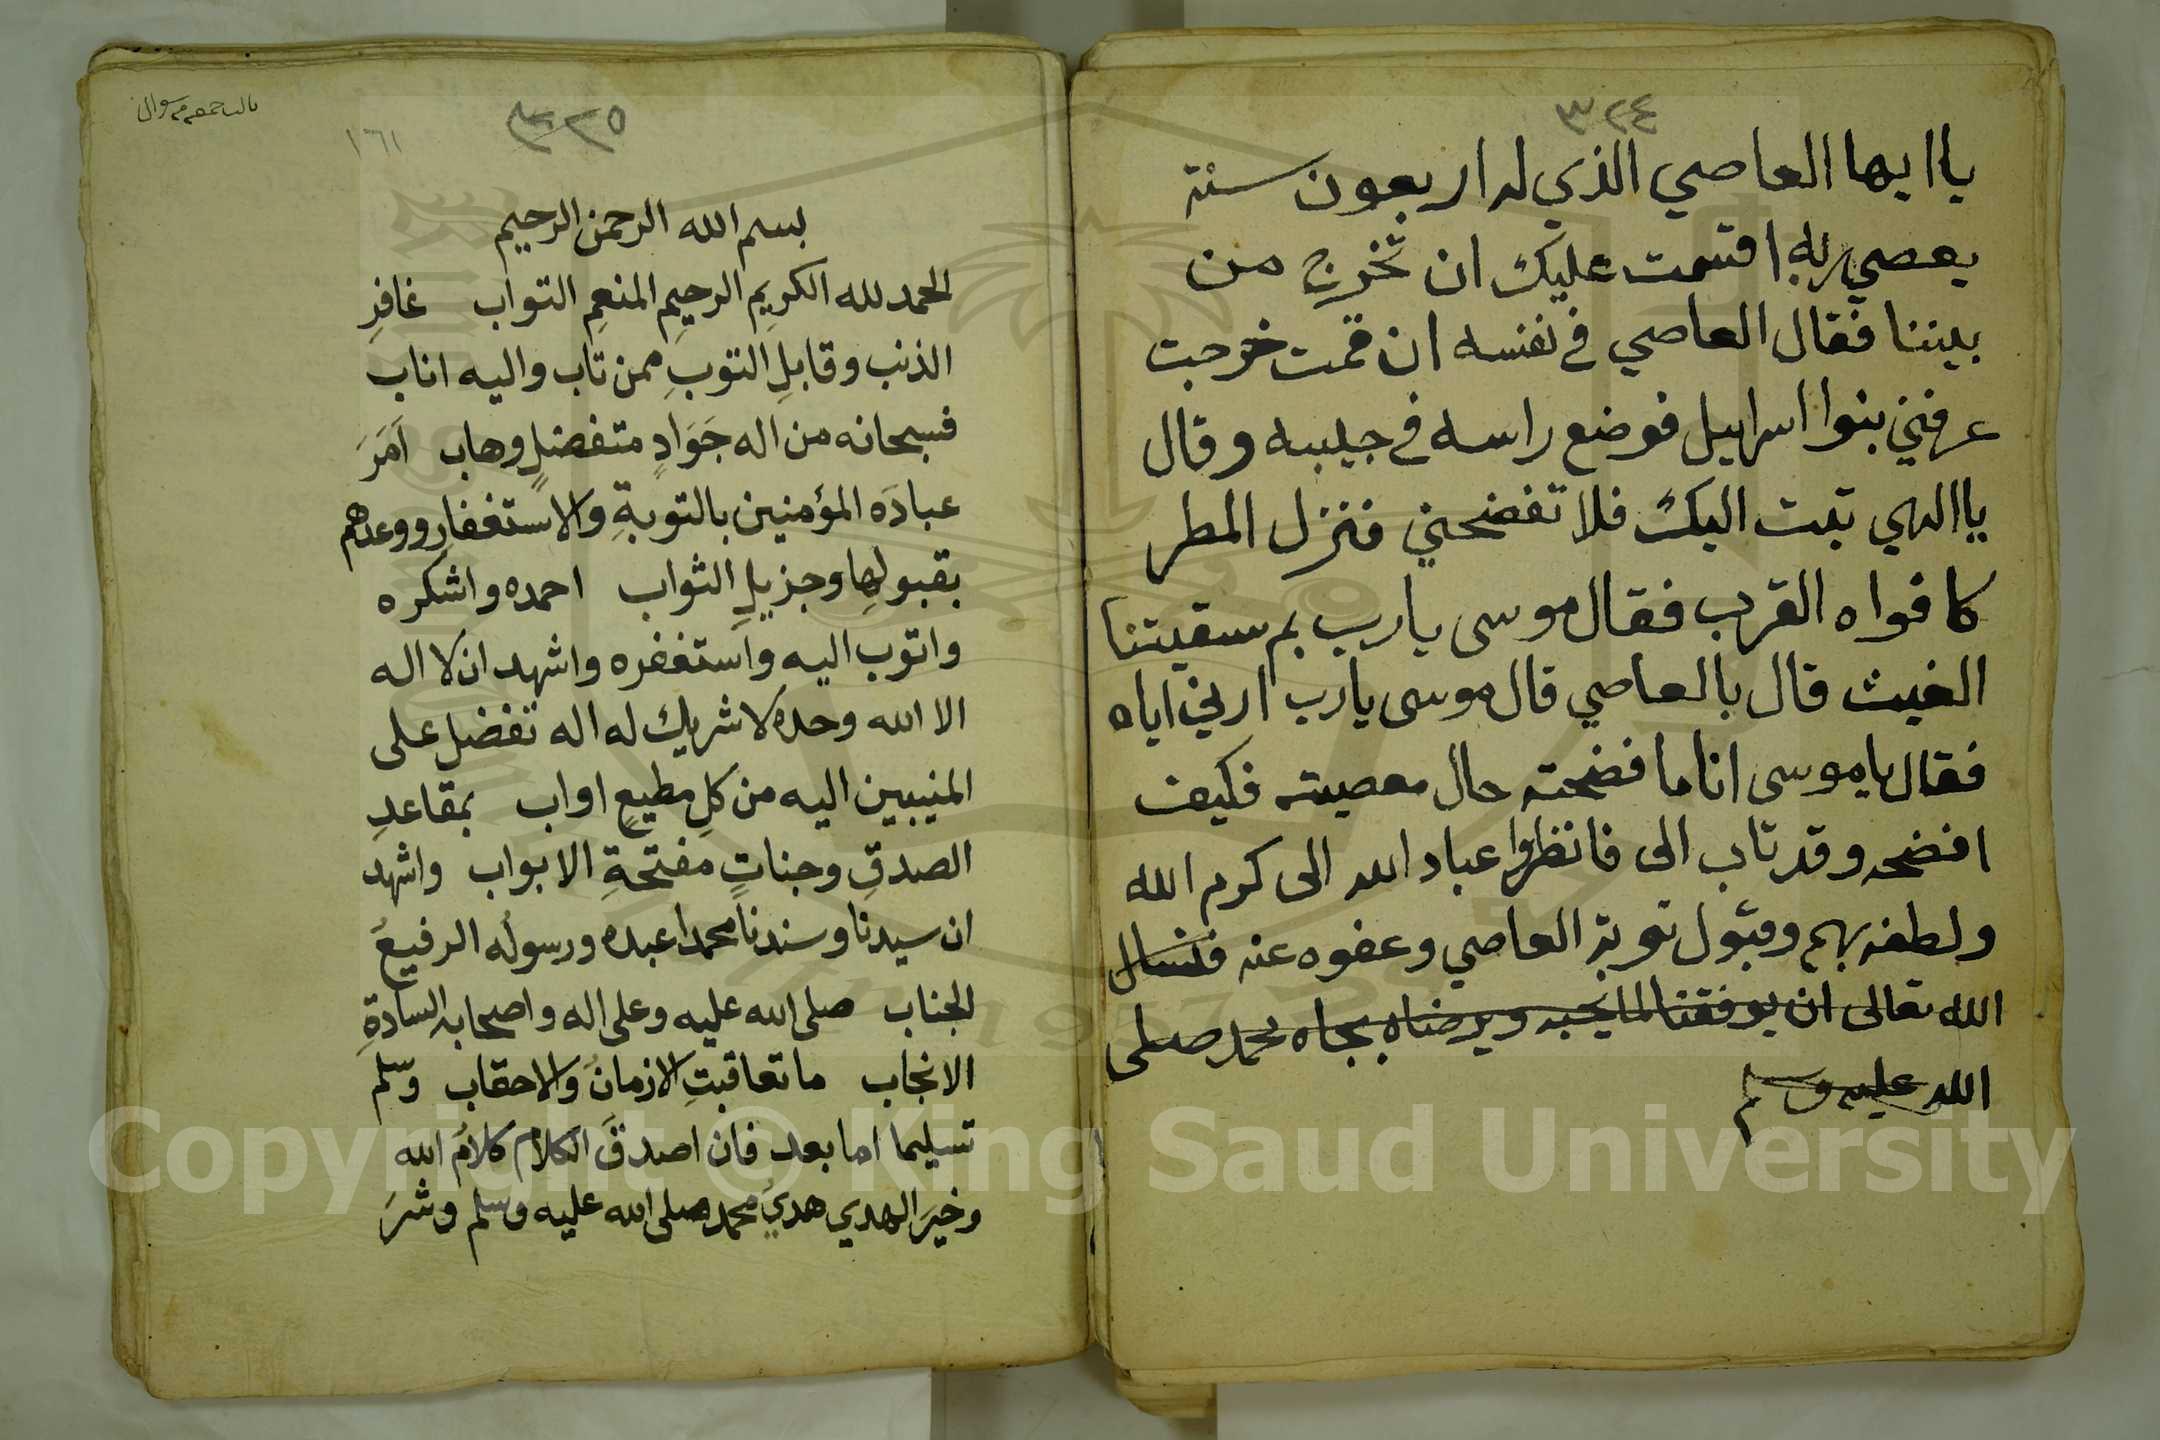 ٣٢٤
يا ايها العاصي الذي له اربعون سنة
يعصي ربه اقسمت عليك ان تخرج من
بيننا فقال العاصي في نفسه ان قمت خرجت
عرفني بنوا اسرايل فوضع راسه في جيبه وقال
يا الهي تبت اليك فلا تفضحني فنزل المطر
كافواه القرب فقال موسى يارب بم سقيتنا
الغيث قال بالعاصي قال موسى يارب ارني اياه
فقال يا موسى انا ما فضحته حال معصيته فكيف
افضحه وقد تاب الى فانظروا عباد الله الى كرم الله
ولطفه بهم وقبول توبة العاصي وعفوه عنه فنسال
الله تعالى ان يوفقنا لما يحبه ويرضاه بجاه محمد صلى
الله عليه وسلم
٣٢٥
١٦١
بسم الله الرحمن الرحيم
الحمد لله الكريم الرحيمِ المنعمِ التواب غافرِ
الذنب وقابلِ التوبِ ممن تاب واليه اناب
فسبحانه من اله جَوَادٍ متفضلٍ وهاب اَمَرَ
عبادَه المؤمنين بالتوبةِ والاستغفارِ ووعدهم
بقبولِها وجزيلِ الثواب احمده واشكره
واتوب اليه واستغفره واشهد ان لا اله
الا الله وحدَه لا شريك له اله تفضل على
المنيبين اليه من كلِ مطيعٍ اواب بمقاعدِ
الصدقِ وجناتٍ مفتحةِ الابواب واشهد
ان سيدنا وسندنا محمدا عبده ورسولُه الرفيعُ
الجناب صلى الله عليه وعلى اله واصحابه السادةِ
الانجاب ما تعاقبتِ الازمانُ والاحقاب وسّلم
تسليما اما بعد فان اصدقَ الكلام كلامُ الله
وخيرَ الهدي هديُ محمد صلى الله عليه وسلم وشرَ
Copyright © King Saud University